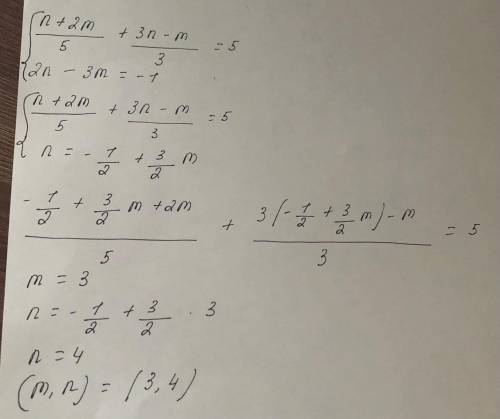 { (n + 2m)/5 + (3n - m)/3 = 5
2n - 3m = -1
{ (n + 2m)/5 + (3n - m)/3 = 5
n = - 1/2 + 3/2 m
(- 1/2 + 3/2 m + 2m)/5 + (3(- 1/2 + 3/2 m) - m)/3 = 5
m = 3
n = - 1/2 + 3/2 · 3
n = 4
(m, n) = (3, 4)